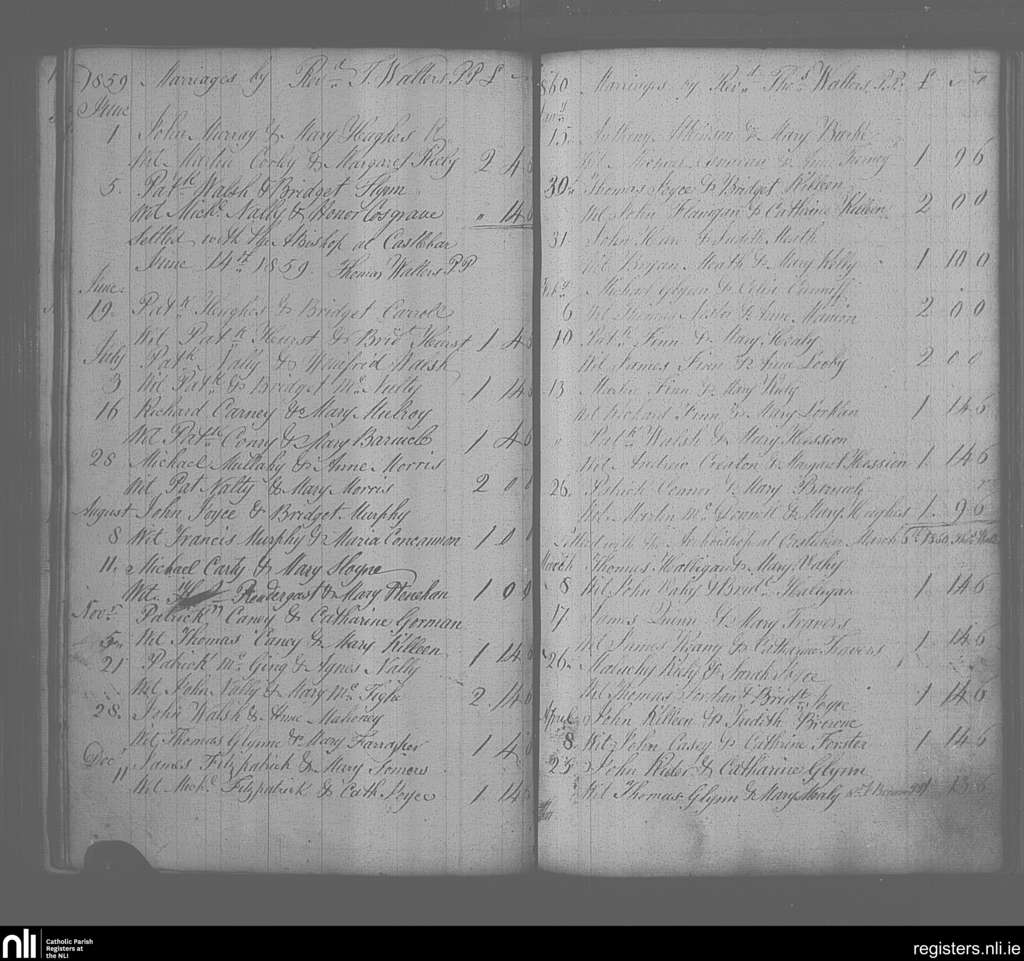 1859 Marriages by Revd. T. Walters P P £
June
1 John Murray & Mary Hughes
Wit Martin Cooley & Margaret 2 4
5. Patk Walsh & Bridget Flynn
Wit Michl. Nally & Honor Cosgrave " 14
Settled with the ABishop at Castlebar
June 14th 1859. Thomas Walters P P
June
19. Patk Hughes & Bridget Carroll
Wit Patk Hurst & Brid Hurst 1 4
July Patk Nally & Winifred Walsh
3 Wit Patk & Bridget Mc Nulty 1 14
16 Richard Carney & Mary Mulroy
Wit Patk Coary & Mary Barnicle 1 4
28 Michael Mullahy & Anne Morris
Wit Pat Natty & Mary Morris 2 0
August John Joyce & Bridget Murphy
8 Wit Francis Murphy & Maria Concannon 1 0
11. Michael Carty & Mary Hoyne
Wit. Prendergast & Mary Monahan 1 0
Novr. Patrick Caney & Catharine Gorman
5 Wit Thomas Caney & Mary Killeen 1 14
21 Patrick Mc Ging & Agnes Nally
Wit John Nally & Mary Mc Tigh 2 14
28. John Walsh & Anne Mahoney
Wit Thomas Glynne & Mary Farragher 1 4
Dec James Fitzpatrick & Mary Somers
11 Wit Michl. Fitzpatrick & Cath Joyce 1 14
1860 Marriages by Revd. Thos Walters P.P. £
15 Anthony Atkinson & Mary Burke
Wit & Anne 1 9 6
30 Thomas Joyce & Bridget Killeen
Wit John Flanagan & Cathrine Killeen 2 0 0
31 John & Judith Meath
Wit Bryan Meath & Mary 1 10 0
Feby Michael Glynn & Celia Canniff
6 Wit Thomas & Anne Manion 2 0 0
10 Patk Finn & Mary Healy
Wit James Finn & Anne Looby 2 0 0
13 Martin Finn & Mary
Wit Richard Finn & Mary 1 14 6
" Patk Walsh & Mary Hession
Wit Andrew Creaton & Margaret Hession 1 14 6
26. Patrick Connor & Mary Barnicle
Wit Martin Mc Donnell & Mary Hughes 1 9 6
Settled with the Archbishop at March 5th 1860
March Thomas Halligan & Mary Vahy
8 Wit John Vahy & Bridt. Halligan 1 14 6
17 James Quinn & Mary Travers
Wit James & Catharine Travers 1 14 6
26. Malachy & Sarah Joyce
Wit Thomas Jordan & Bridt. Joyce 1 14 6
April John Killeen & Judith Browne
8 Wit John Casey & Cathrine Forster 1 14 6
23 John & Catharine Glynn
Wit Thomas Glynn & Mary Mealy 1 13 6
nli Catholic Parish
Registers at
the NLI
registers.nli.ie